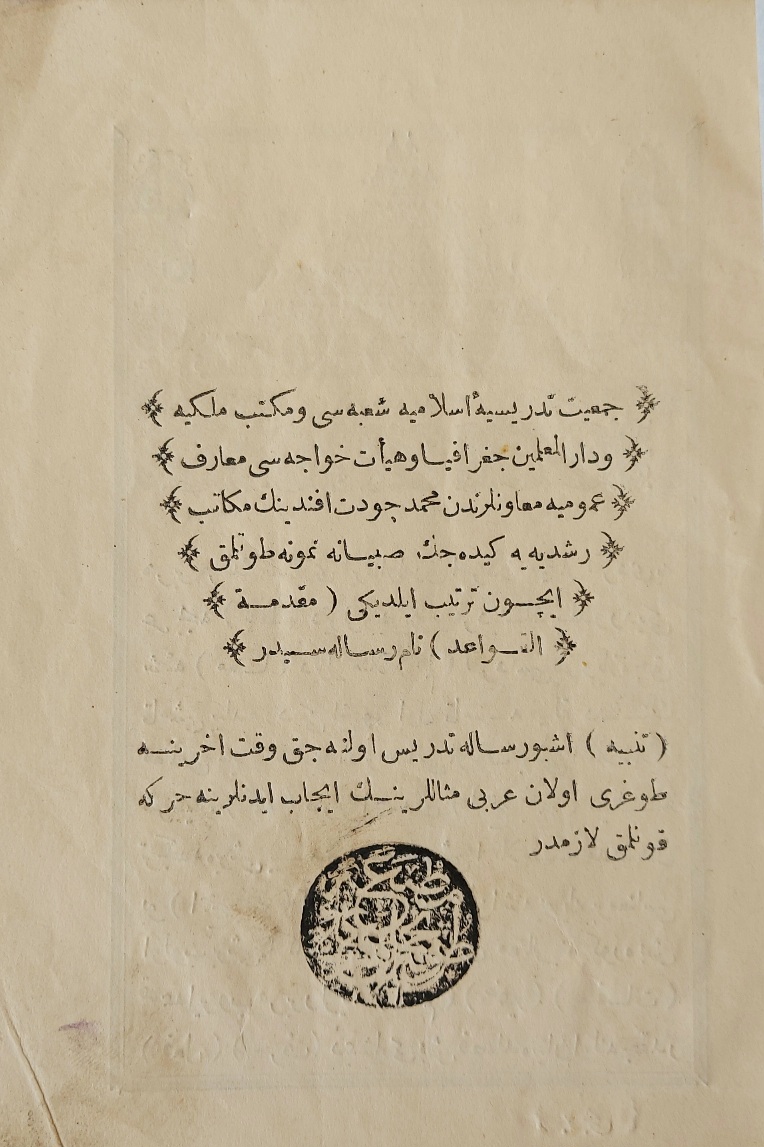 جمعيت تدريسيۀ اسلاميه شعبه سی و مكتب ملكيه
ودار المعلمين جغرافيا وهيأت خواجه سی معارف
عموميه معاونلرندن محمد جودت افندينك مكاتب
رشديه يه كيده جك صبيانه نمونه طوتلمق
ايچون ترتيب ايلديكی ( مقدمة
القواعد ) نام رساله سيدر
( تنبيه ) اشبو رساله تدريس اولنه جق وقت اخرينه
طوغری اولان عربی مثاللرينك ايجاب ايدنلرينه حركه
قونلمق لازمدر